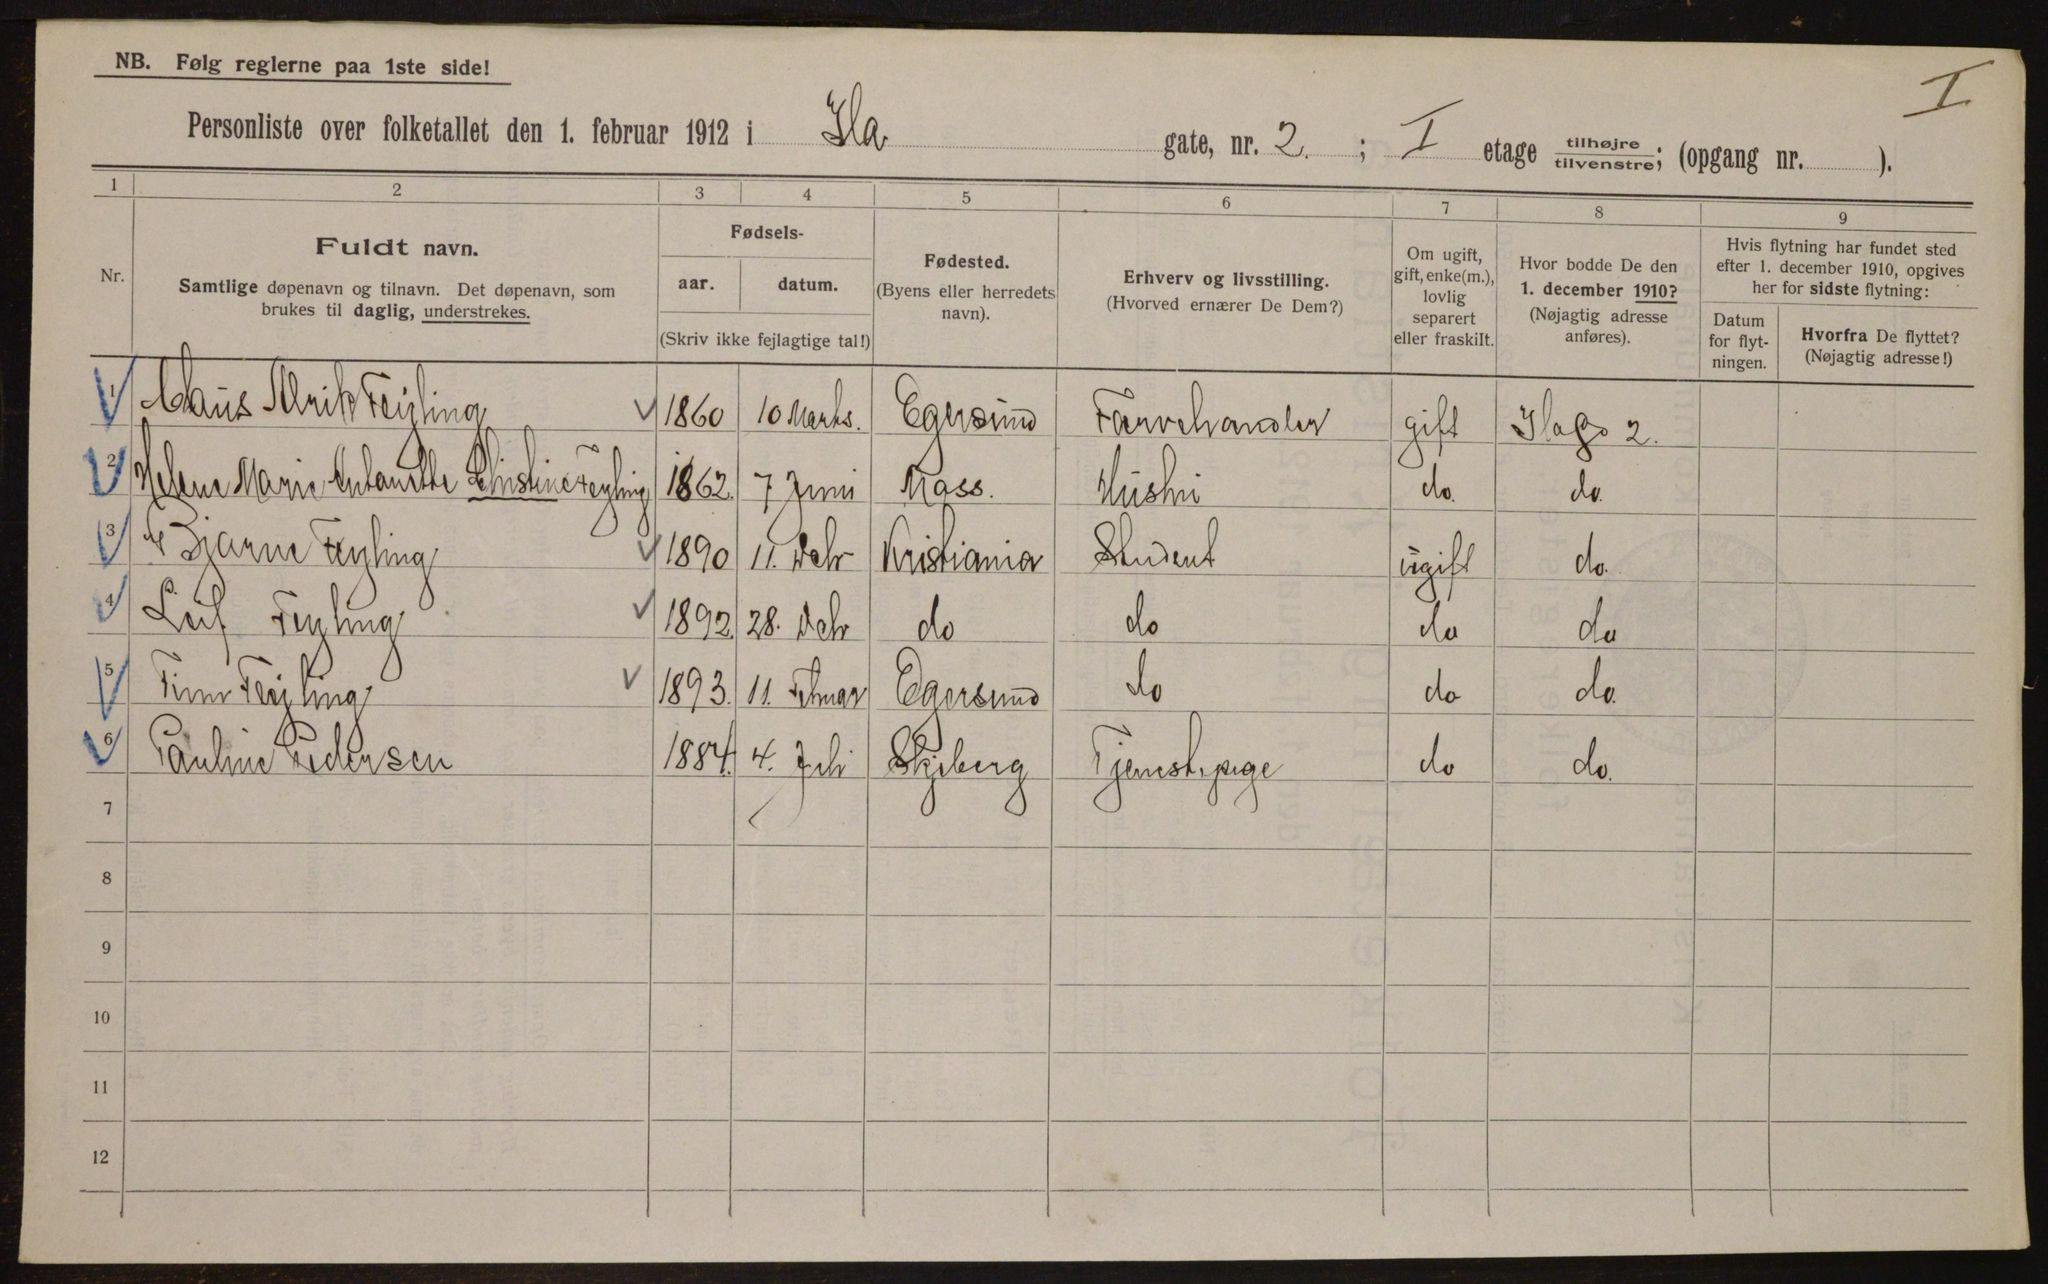 NB. Følg reglerne paa 1ste side!
I
Personliste over folketallet den 1. februar 1912 i Ila gate, nr. 2. ; I etage tilhøjre/tilvenstre; (opgang nr. ).
1 2 3 4 5 6 7 8 9
Nr.
Fuldt navn.
Samtlige døpenavn og tilnavn. Det døpenavn, som
brukes til daglig, understrekes.
Fødsels-
aar. datum.
(Skriv ikke fejlagtige tal!)
Fødested.
(Byens eller herredets
navn).
Erhverv og livsstilling.
(Hvorved ernærer De Dem?)
Om ugift,
gift, enke(m.),
lovlig
separert
eller fraskilt.
Hvor bodde De den
1. december 1910?
(Nøjagtig adresse
anføres).
Hvis flytning har fundet sted
efter 1. december 1910, opgives
her for sidste flytning:
Datum
for flyt-
ningen.
Hvorfra De flyttet?
(Nøjagtig adresse!)
1 Claus Ulrik Feyling 1860 10 Marts. Egersund Farvehandler gift Ilagd 2.
2 Helene Marie Antonette Christine Feyling 1862. 7 Juni Moss. Hustru do. do.
3 Bjarne Feyling 1890 11. Debr Kristiania Student ugift do.
4 Leif Feyling 1892 28. Debr do do do do
5 Finn Feyling 1893. 11. Februar Egersund do do do.
6 Pauline Pedersen 1884. 4. Juli Skjeberg Tjenestepige do do.
7
8
9
10
11
12